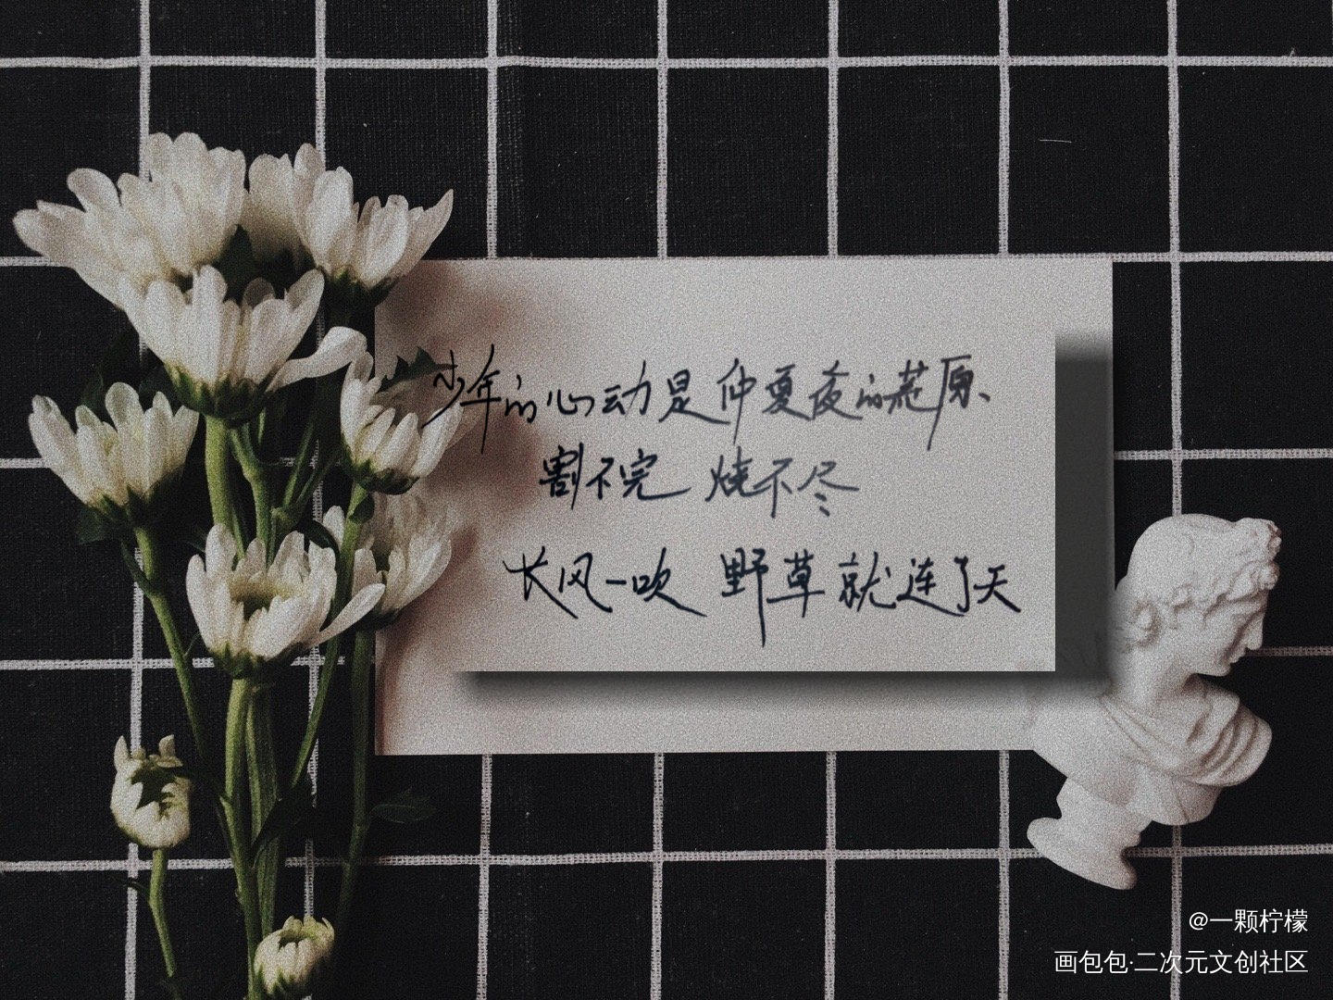 少年的心动是仲夏夜的荒原、
割不完 烧不尽
长风一吹 野草就连了天
@一颗柠檬
画包包·二次元文创社区